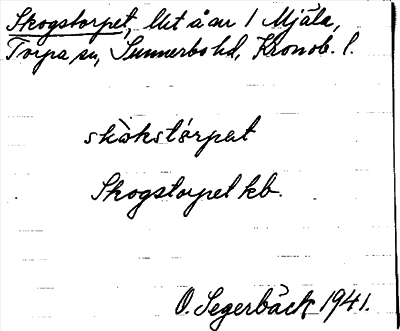 Skogstorpet, lht å av 1 Mjäla,
Torpa sn, Sunnerbo hd, Kronob. l.
skòkstórpat
Skogstorpet kb.
O. Segerbäck 1941.